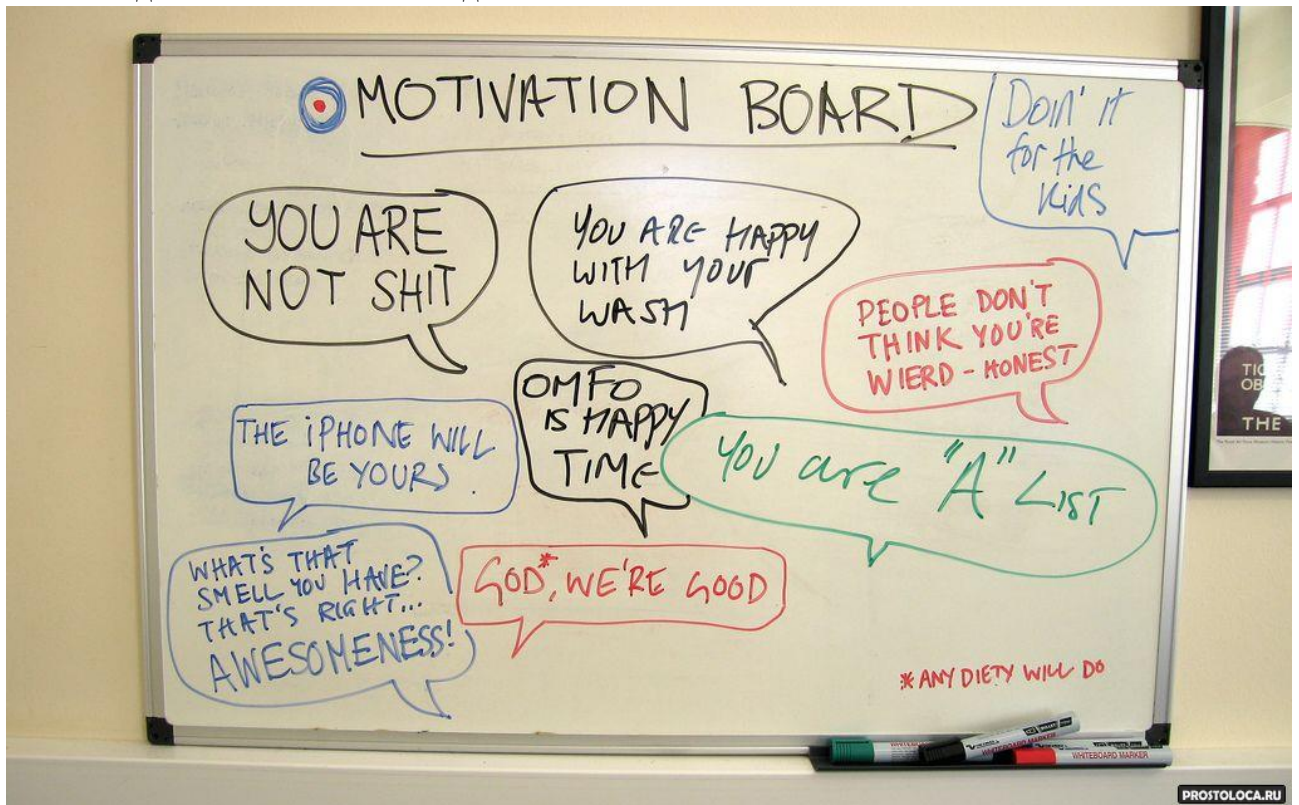 MOTIVATION BOARD
Doin' it
for the
Kids
YOU ARE
NOT SHIT
YOU ARE HAPPY
WITH YOUR
WASH
PEOPLE DON'T
THINK YOU'RE
WIERD - HONEST
OMFO
IS HAPPY
TIME
THE iPHONE WILL
BE YOURS.
YOU are "A" LIST
WHAT'S THAT
SMELL YOU HAVE?
THAT'S RIGHT...
AWESOMENESS!
GOD*, WE'RE GOOD
* ANY DIETY WILL DO
THE
WHITEBOARD MARKER
WHITEBOARD MARKER
PROSTOLOCA.RU